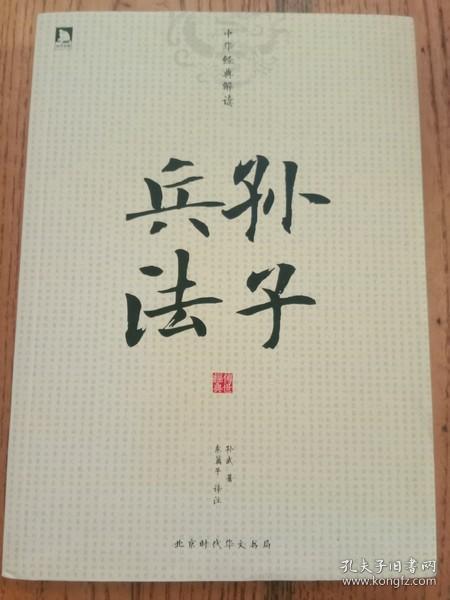 中华经典解读
孙子
兵法
傳世
經典
孙武 著
东篱子 译注
北京时代华文书局
孔夫子旧书网
www.kongfz.com